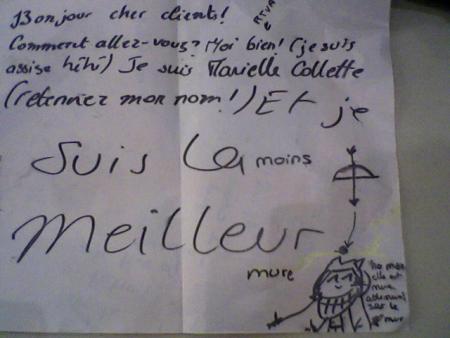 Bonjour cher clients!
Comment allez-vous? Moi bien! (je suis
assise hihi) Je suis Marielle Collette
(retennez mon nom!) Et je
suis La moins
meilleur
mure
elle est
mure
sur le
mur